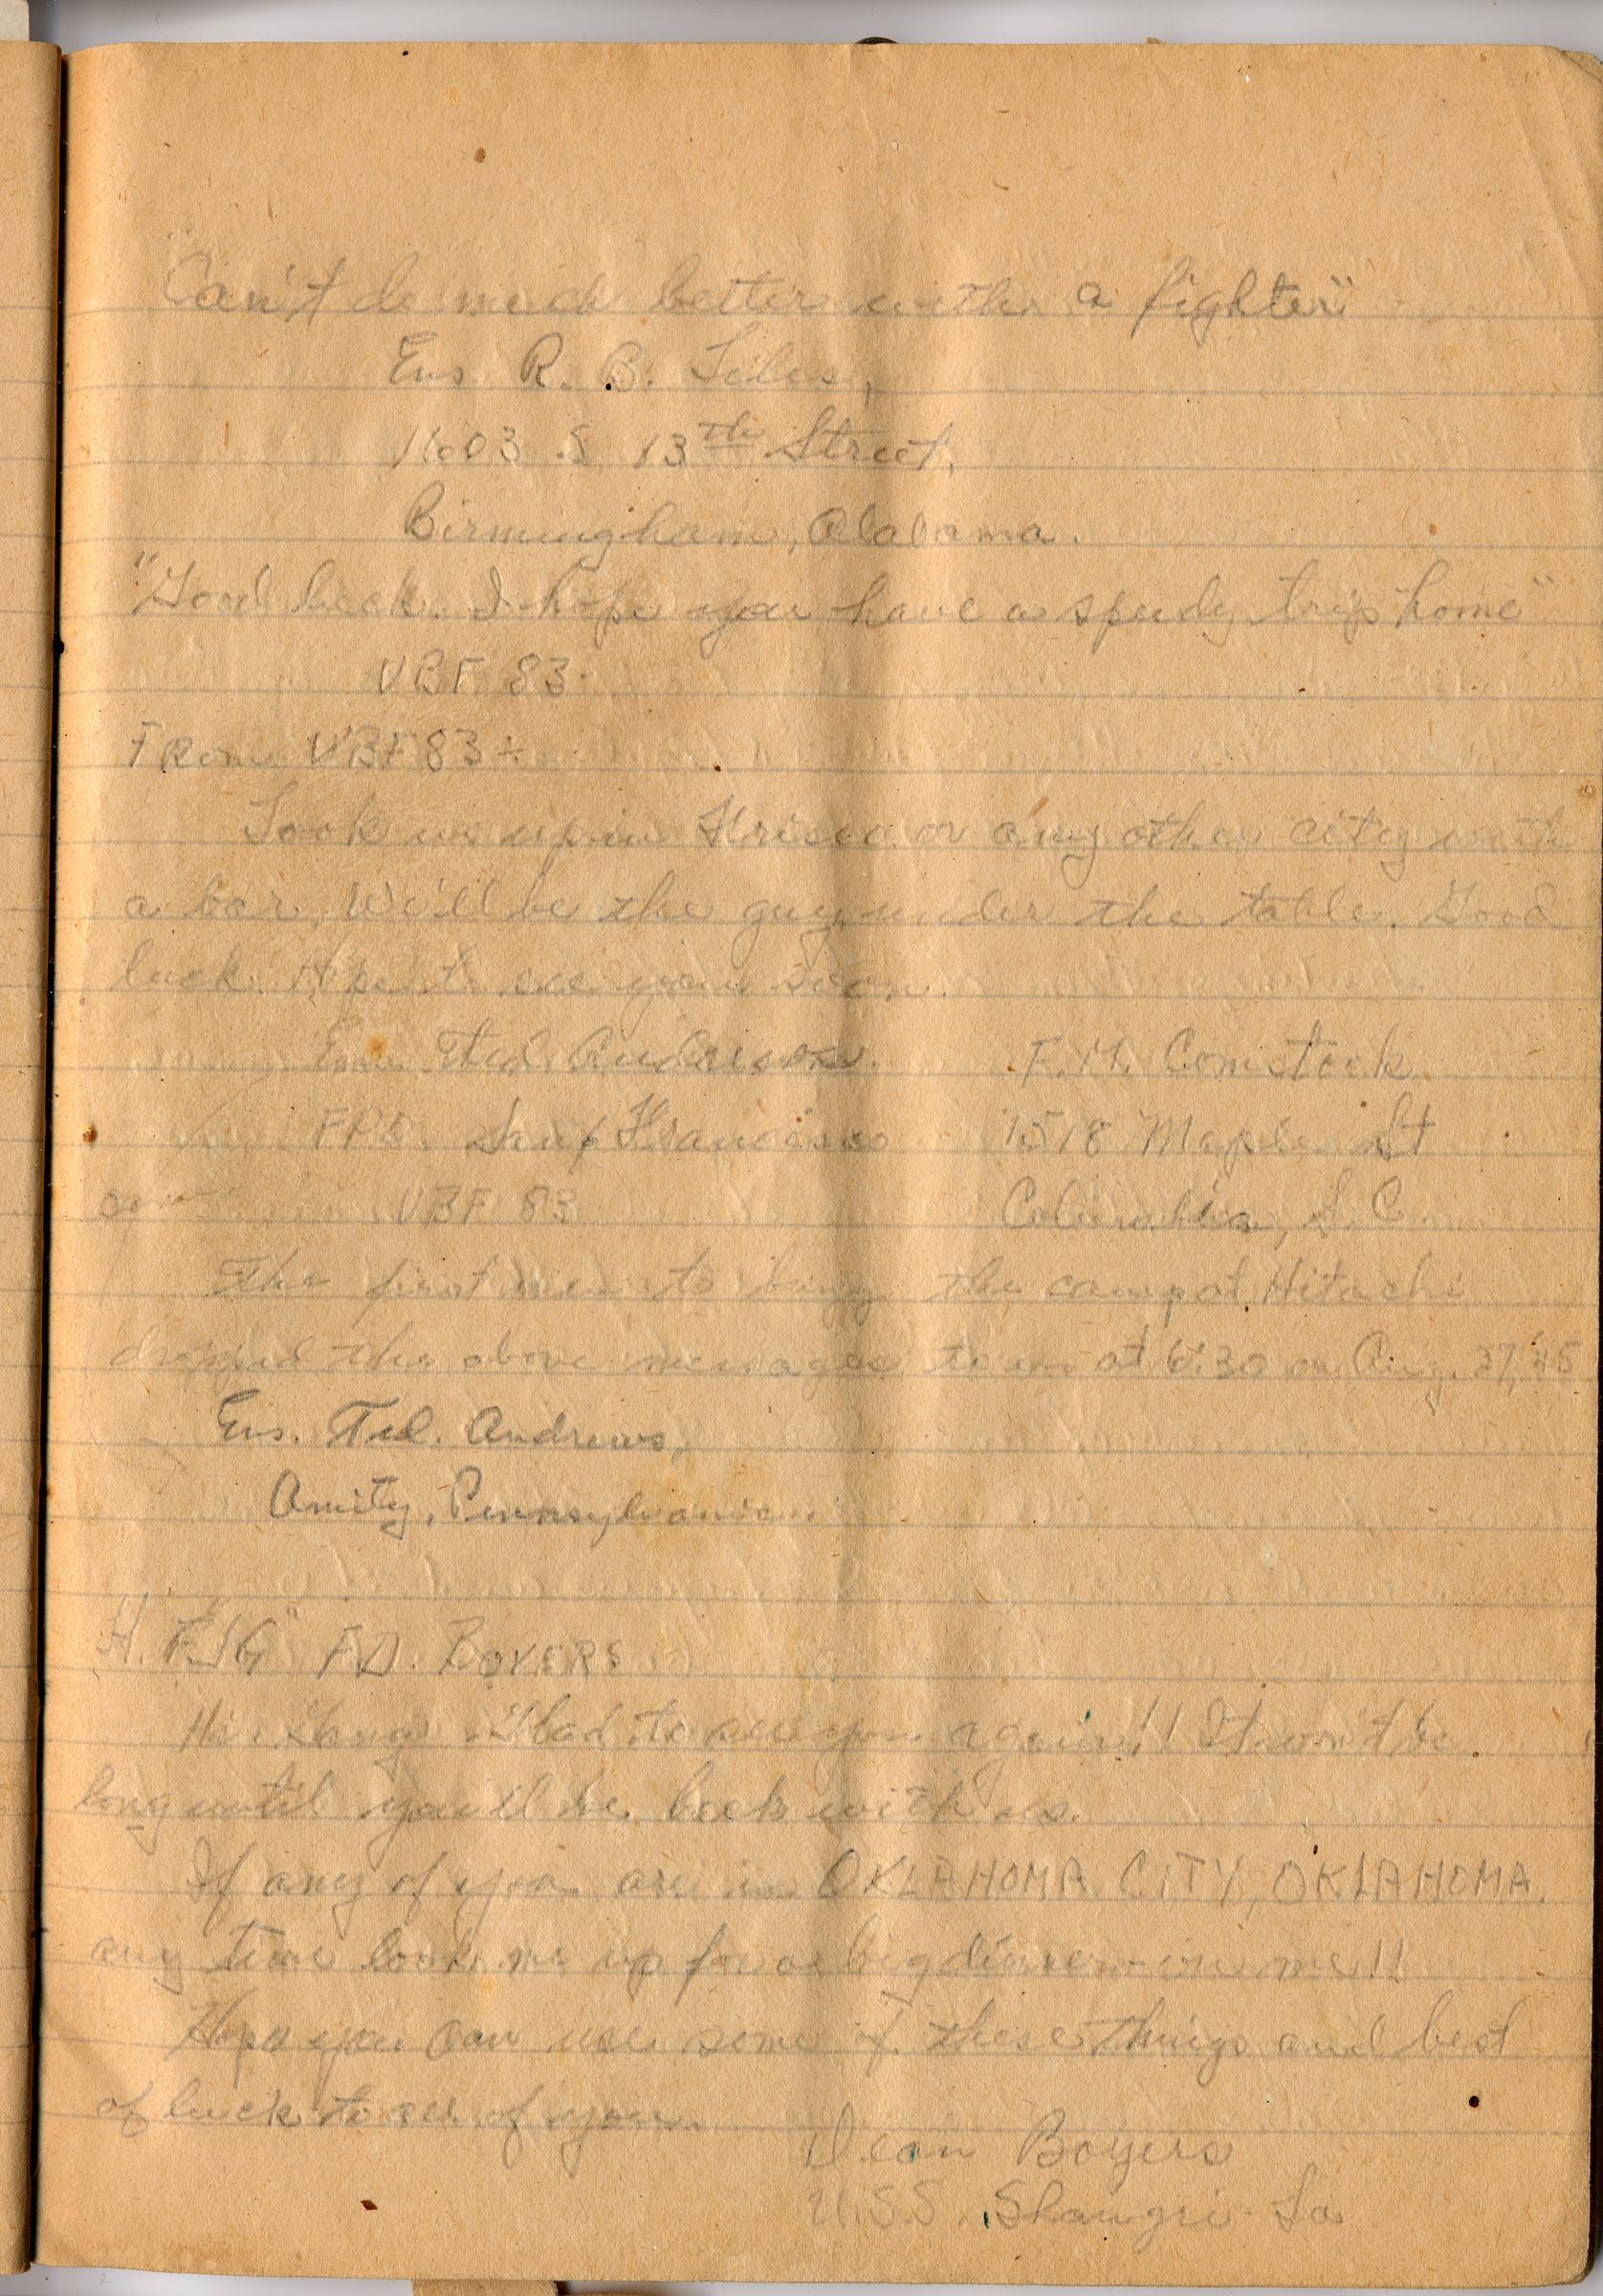 "Can't do much better with a fighter"
Ens. R. B.
1603 S 13th Street,
Birmingham, Alabama.
"Good luck. I hope you have a speedy trip home"
VBF 83.
From VBF 83 -
Look us up in Frisco or any other city with
a bar. We'll be the guy under the table. Good
luck. Hope to see you soon.
Ens. Ted. Andrews.
F.M. Comstock
FPO. San Francisco
1518 Maple St
VBF 83
Columbia, S.C.
The first men to buzz the camp at Hitachi
dropped the above messages to us at 6:30 on Aug. 27, 45
Ens. Ted. Andrews,
Amity, Pennsylvania.
F.D. BOYERS
Hi Gang. Glad to see you again!! It won't be
long until you'll be back with us.
If any of you are in OKLAHOMA CITY, OKLAHOMA.
any time look me up for a big dinner - on me!!
Hope you can use some of these things and best
of luck to all of you.
Dean Boyers
U.S.S. Shangri-La